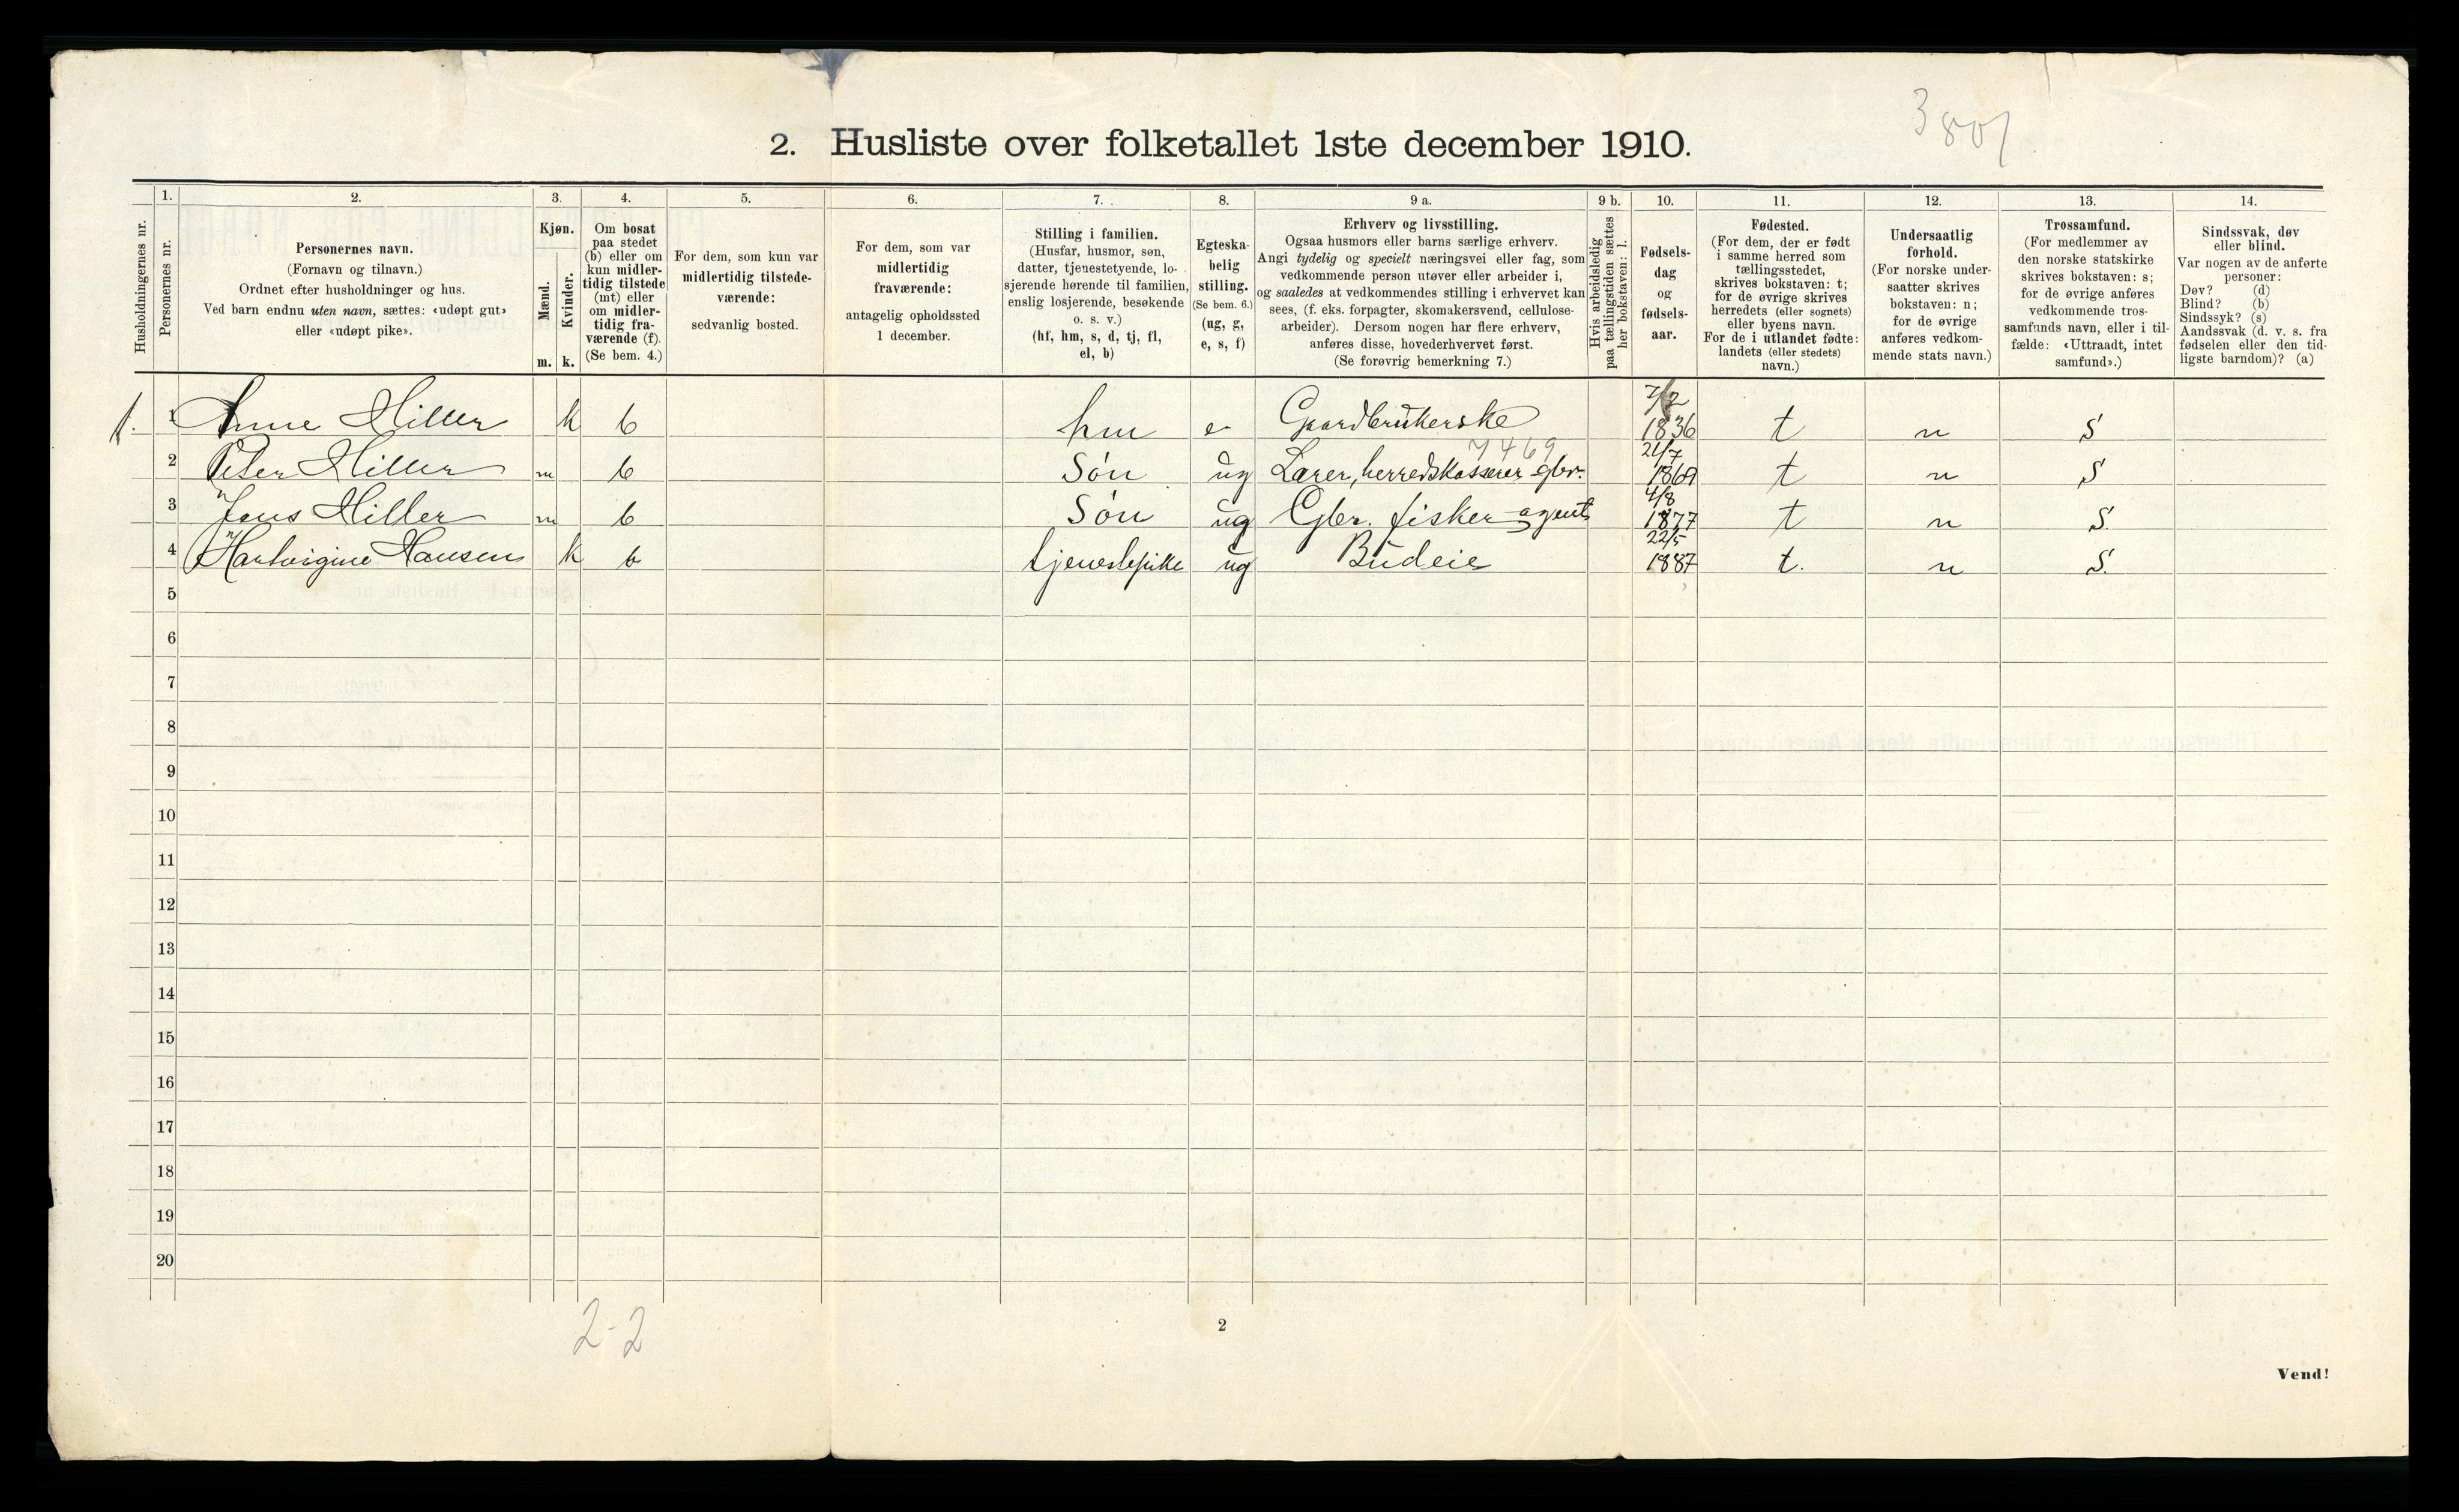 3801
2. Husliste over folketallet 1ste december 1910.
Husholdningernes nr.
1.
Personernes nr.
2.
Personernes navn.
(Fornavn og tilnavn.)
Ordnet efter husholdninger og hus.
Ved barn endnu uten navn, sættes: «udøpt gut»
eller «udøpt pike».
3.
Kjøn.
Mænd.
m.
Kvinder.
k.
4.
Om bosat
paa stedet
(b) eller om
kun midler-
tidig tilstede
(mt) eller
om midler-
tidig fra-
værende (f).
(Se bem. 4.)
5.
For dem, som kun var
midlertidig tilstede-
værende:
sedvanlig bosted.
6.
For dem, som var
midlertidig
fraværende:
antagelig opholdssted
1 december.
7.
Stilling i familien.
(Husfar, husmor, søn,
datter, tjenestetyende, lo-
sjerende hørende til familien,
enslig losjerende, besøkende
o. s. v.)
(hf, hm, s, d, tj, fl,
el, b)
8.
Egteska-
belig
stilling.
(Se bem. 6.)
(ug, g,
e, s, f)
9 a.
Erhverv og livsstilling.
Ogsaa husmors eller barns særlige erhverv.
Angi tydelig og specielt næringsvei eller fag, som
vedkommende person utøver eller arbeider i,
og saaledes at vedkommendes stilling i erhvervet kan
sees, (f. eks. forpagter, skomakersvend, cellulose-
arbeider). Dersom nogen har flere erhverv,
anføres disse, hovederhvervet først.
(Se forøvrig bemerkning 7.)
9 b.
Hvis arbeidsledig
paa tællingstiden sættes
her bokstaven: l.
10.
Fødsels-
dag
og
fødsels-
aar.
11.
Fødested.
(For dem, der er født
i samme herred som
tællingsstedet,
skrives bokstaven: t;
for de øvrige skrives
herredets (eller sognets)
eller byens navn.
For de i utlandet fødte:
landets (eller stedets)
navn.)
12.
Undersaatlig
forhold.
(For norske under-
saatter skrives
bokstaven: n;
for de øvrige
anføres vedkom-
mende stats navn.)
13.
Trossamfund.
(For medlemmer av
den norske statskirke
skrives bokstaven: s;
for de øvrige anføres
vedkommende tros-
samfunds navn, eller i til-
fælde: «Uttraadt, intet
samfund».)
14.
Sindssvak, døv
eller blind.
Var nogen av de anførte
personer:
Døv? (d)
Blind? (b)
Sindssyk? (s)
Aandssvak (d. v. s. fra
fødselen eller den tid-
ligste barndom)? (a)
1. 1 Anne Hiller k b hm e Gaardbrukerske 7/2 1836 t n S
7469
2 Peter Hiller m b Søn ug Lærer, herredskasserer gbr. 21/7 1869 t n S
3 Jens Hiller m b Søn ug Gbr. fisker agent 4/8 1877 t n S.
4 Hartvigine Hansen k b tjenestepike ug Budeie 22/5 1887 t. n S.
5
6
7
8
9
10
11
12
13
14
15
16
17
18
19
20
2-2
2
Vend!